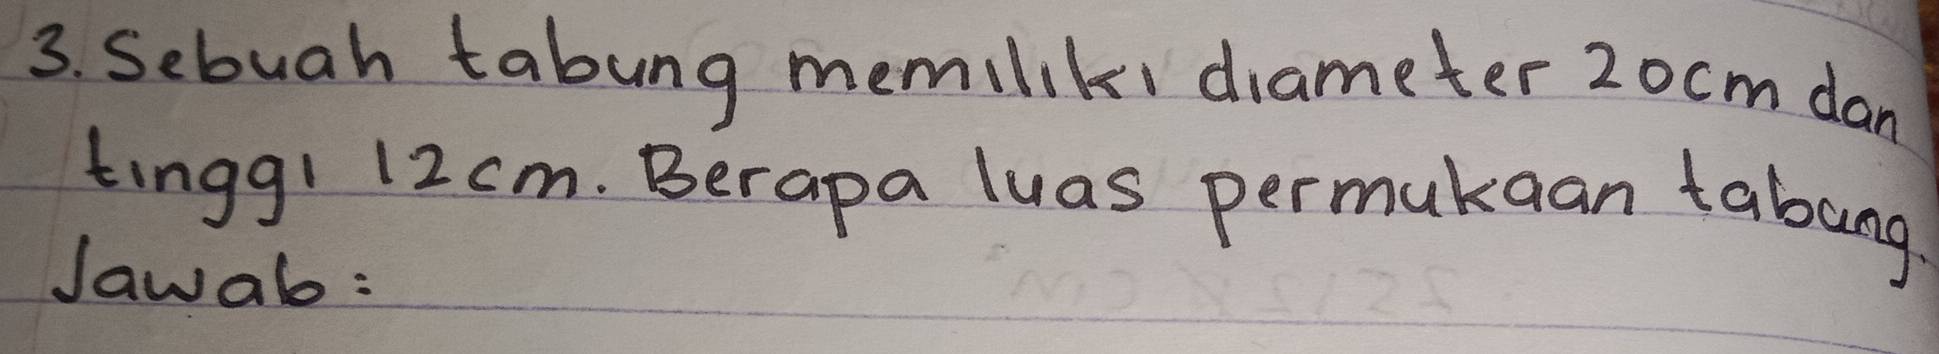 3. Sebuah tabung memiliki diameter 20cm dan
tinggi 12cm. Berapa luas permukaan tabung.
Jawab: